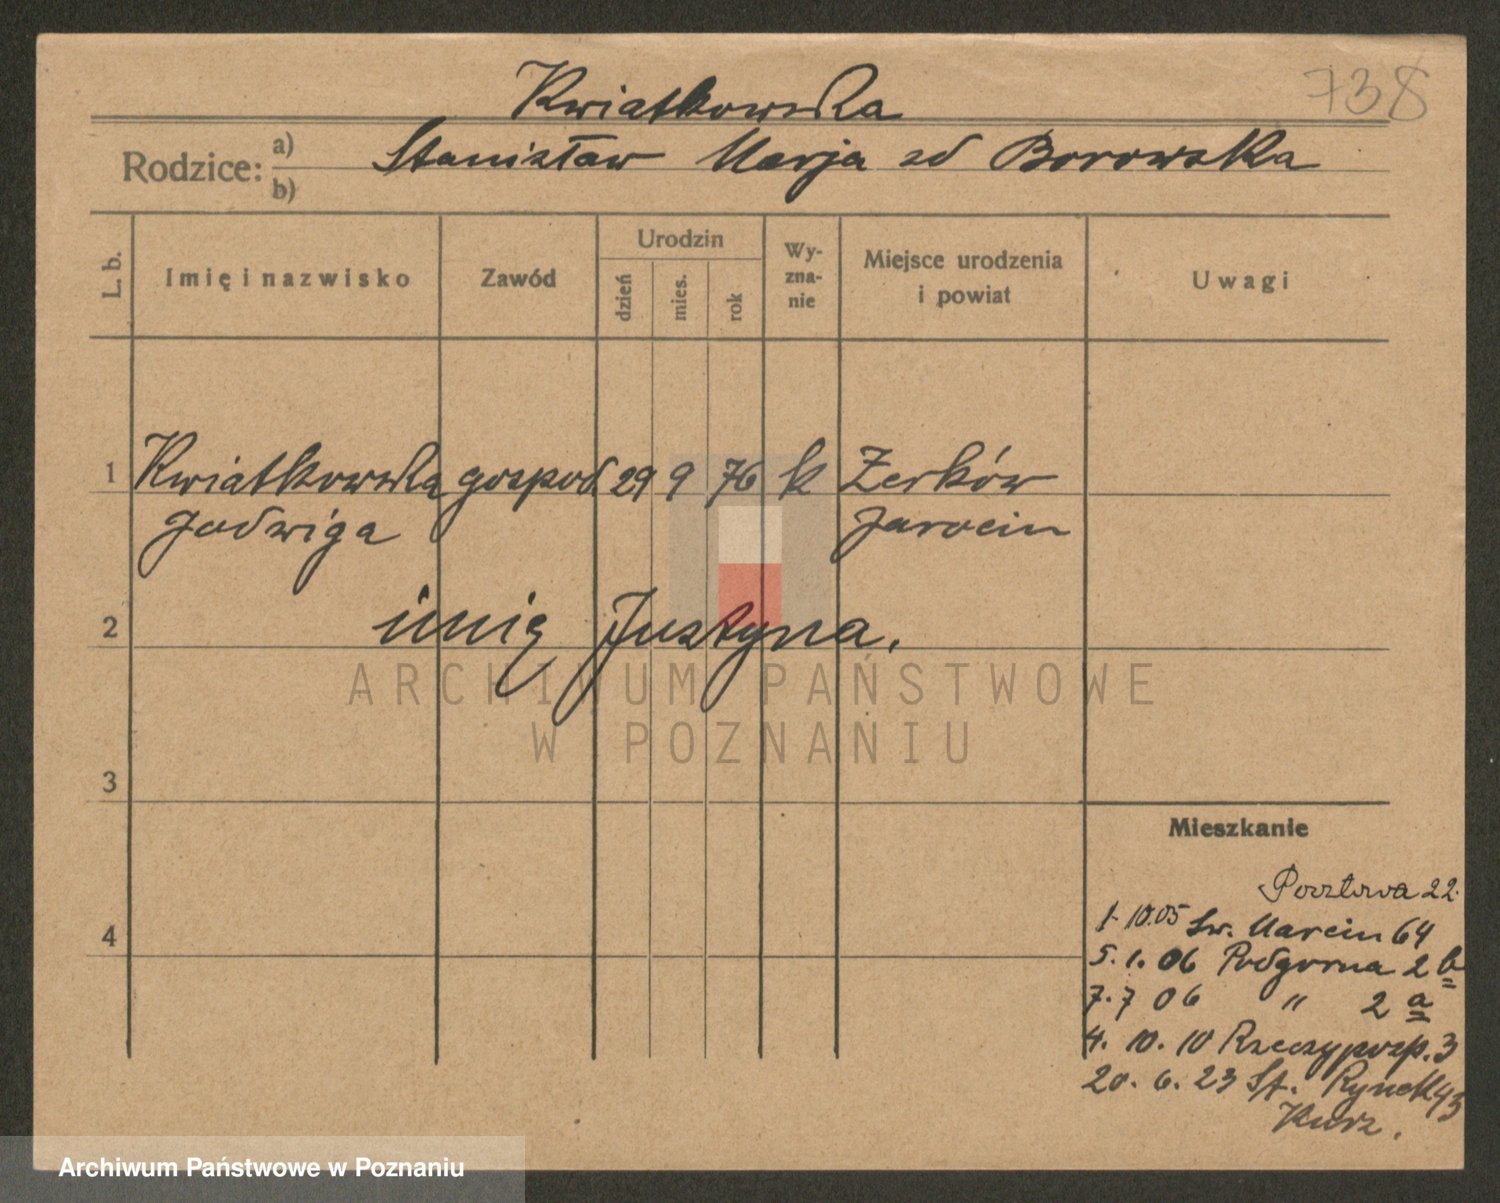 738
Kwiatkowska
Rodzice: a) Stanisław Marja zd Borowska
b)
L. b.
Imię i nazwisko
Zawód
Urodzin
dzień
mies.
rok
Wy-
zna-
nie
Miejsce urodzenia
i powiat
Uwagi
1 Kwiatkowska gospod. 29 9 76 k Zerków
Jadwiga Jarocin
2 imię Justyna.
3
4
Mieszkanie
Pocztowa 22.
1. 10.05 Św. Marcin 64
5. 1. 06 Podgorna 2 b
7. 7 06 " 2 a
4. 10. 10 Rzeczyposp. 3
20. 6. 23 St. Rynek 43
Kurz.
ARCHIWUM PAŃSTWOWE
W POZNANIU
Archiwum Państwowe w Poznaniu